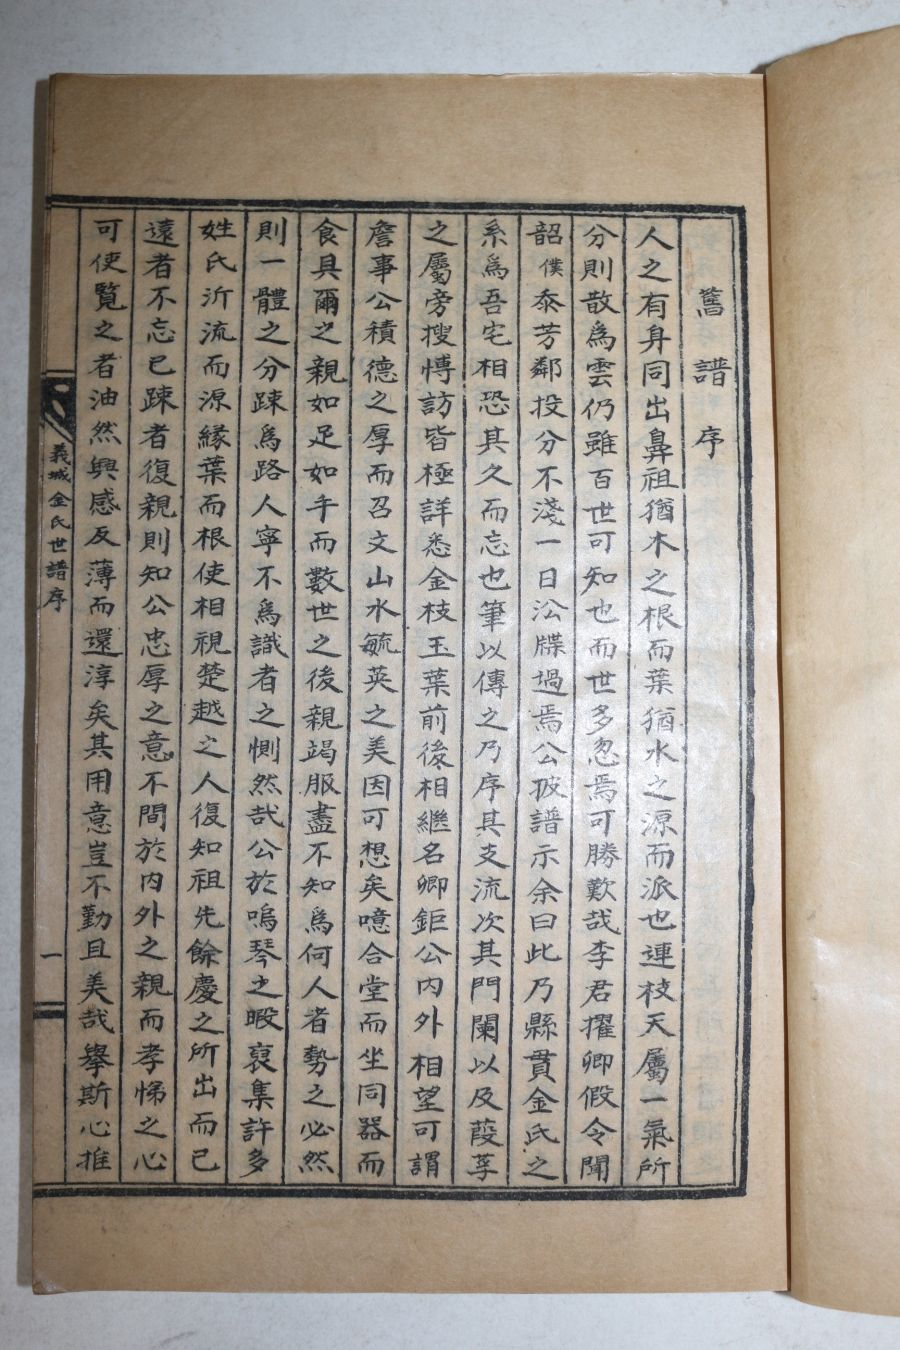 舊譜序
人之有身同出鼻祖猶木之根而葉猶水之源而派也連枝天屬一氣所
分則散爲雲仍雖百世可知也而世多忽焉可勝歎哉李君擢卿假令聞
韶僕忝芳鄰投分不淺一日公牒過焉公披譜示余曰此乃縣貫金氏之
系爲吾宅相恐其久而忘也筆以傳之乃序其支流次其門闌以及葭莩
之屬旁搜博訪皆極詳悉金枝玉葉前後相繼名卿鉅公內外相望可謂
詹事公積德之厚而召文山水毓英之美因可想矣噫合堂而坐同器而
食具爾之親如足如手而數世之後親竭服盡不知爲何人者勢之必然
則一體之分踈爲路人寧不爲識者之惻然哉公於嗚琴之暇裒集許多
姓氏沂流而源緣葉而根使相視楚越之人復知祖先餘慶之所出而已
遠者不忘已踈者復親則知公忠厚之意不間於內外之親而孝悌之心
可使覽之者油然興感反薄而還淳矣其用意豈不勤且美哉擧斯心推
義城金氏世譜序
一